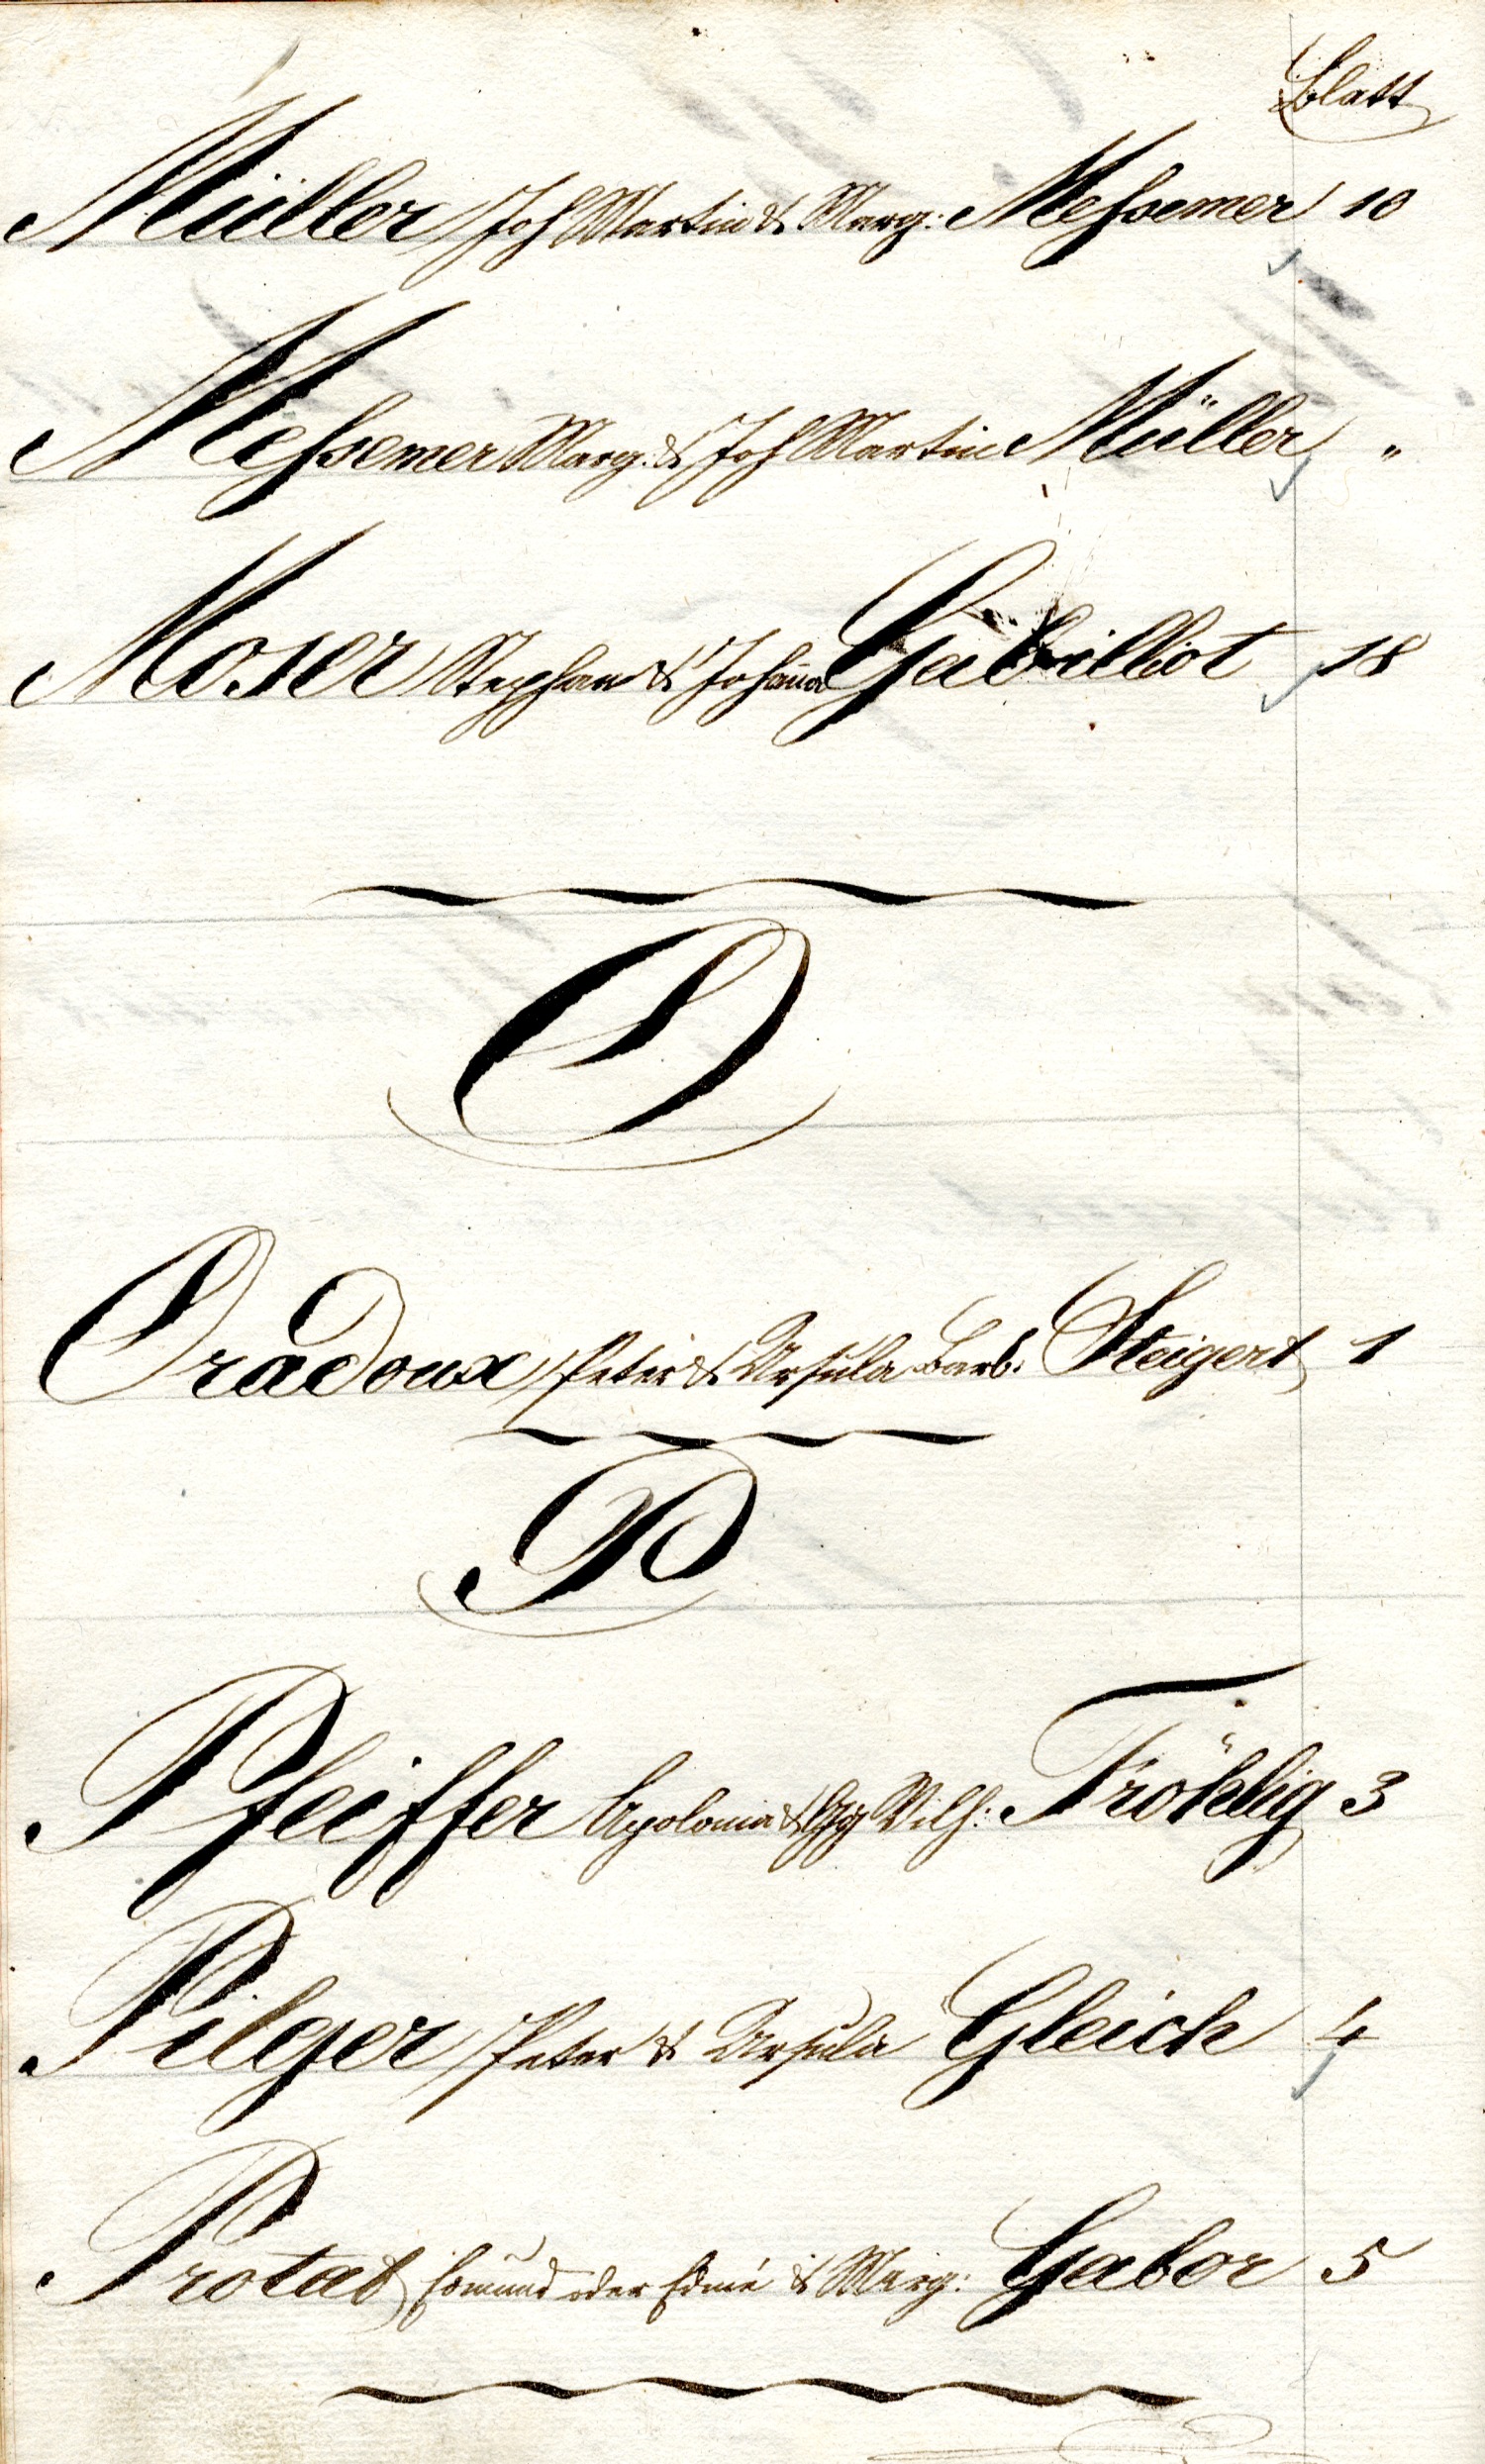 Blatt
Müller Joh Martin & Marg: Meßemer 10
Meßemer Marg: & Joh Martin Müller "
Moser Stephan & Johan̄a Gabrilliot 18
O
Oradoux Peter & Ursula Barb. Steigert 1
P
Pfeiffer Apolonia & Gg Wilh: Fröhlig 3
Pilger Peter & Ursula Gleich 4
Protat Edmund oder Edmé & Marg: Gabor 5